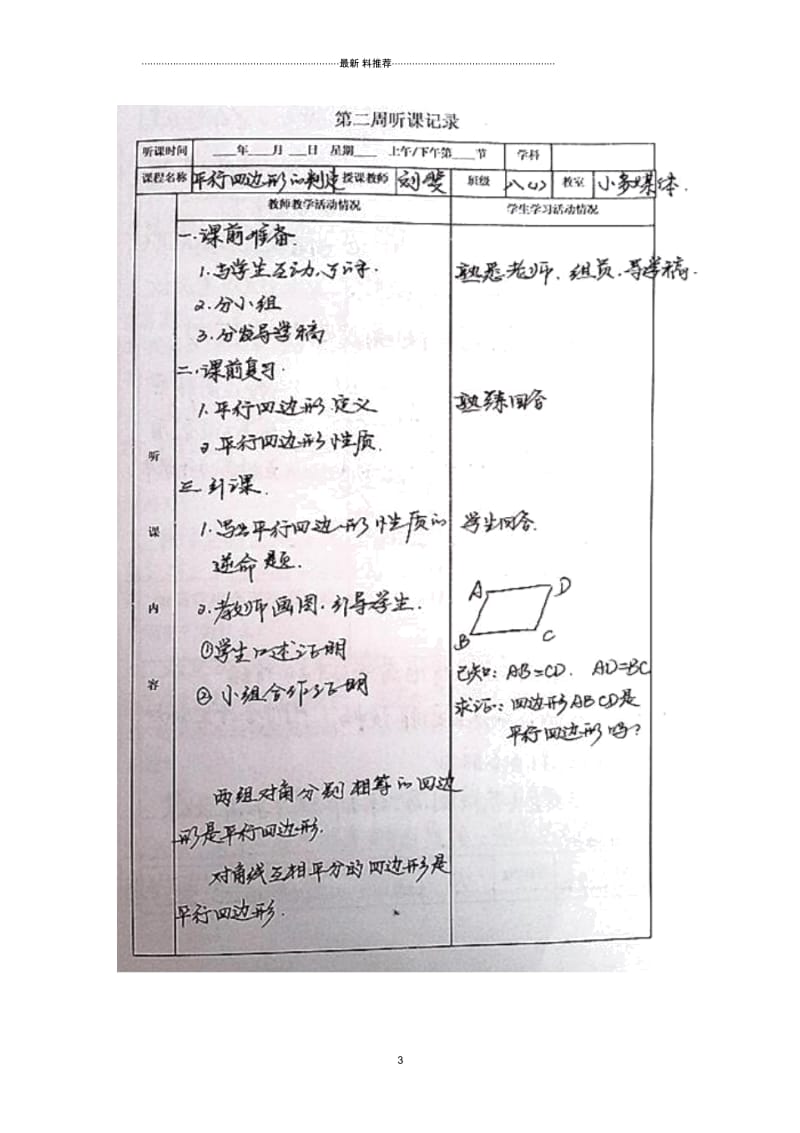 最新 料推荐
第二周听课记录
听课时间 ___年___月 ___日 星期___ 上午/下午第___节 学科
课程名称 平行四边形的判定 授课教师 刘斐 班级 八(1) 教室 小多媒体.
教师教学活动情况 学生学习活动情况
听课内容
一.课前准备
1.与学生互动, 熟悉老师、组员、导学稿.
2.分小组
3.分发导学稿
二.课前复习.
1.平行四边形定义 熟练回答
2.平行四边形性质.
三.引课.
1.写出平行四边形性质的 学生回答.
逆命题.
2.教师画图.引导学生.
A D
B C
①学生口述证明
已知: AB=CD. AD=BC
②小组合作证明
求证: 四边形ABCD是
平行四边形吗?
两组对角分别相等的四边
形是平行四边形.
对角线互相平分的四边形是
平行四边形.
3